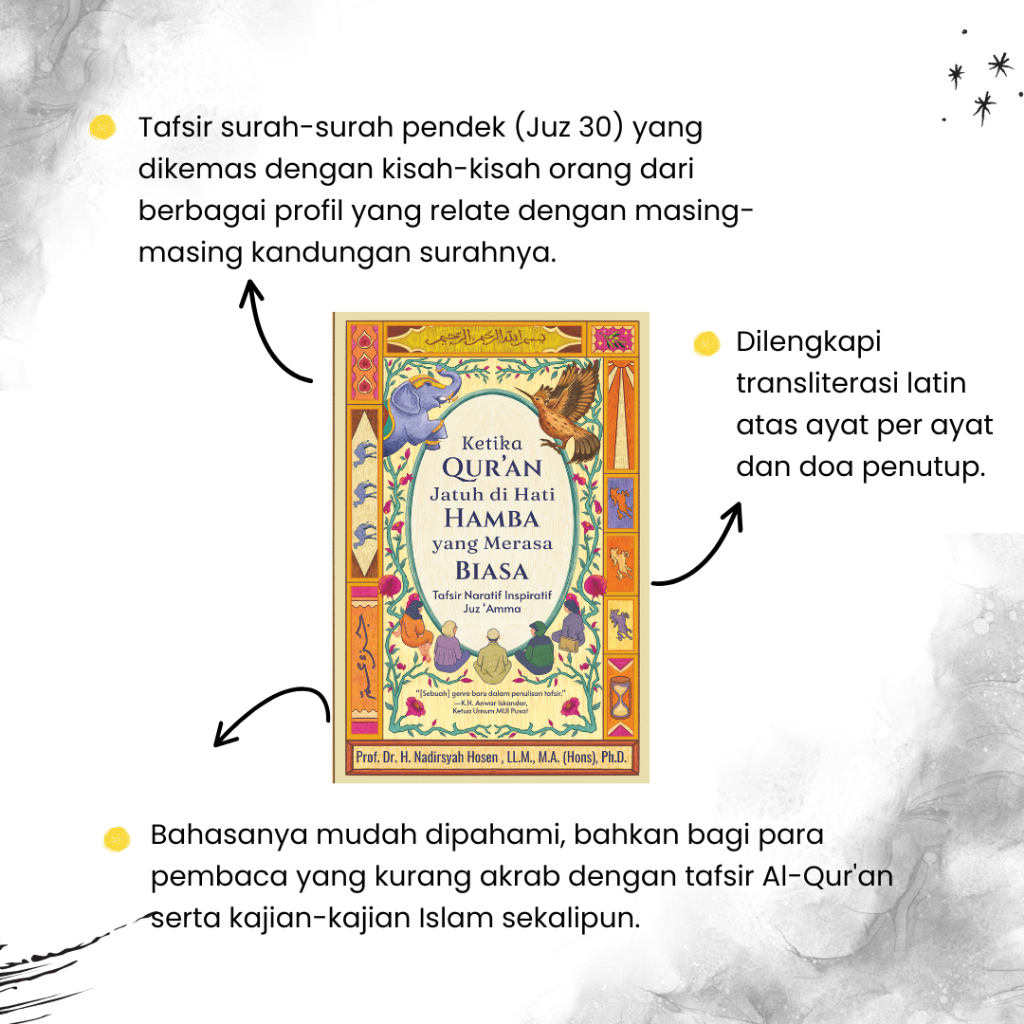 Tafsir surah-surah pendek (Juz 30) yang
dikemas dengan kisah-kisah orang dari
berbagai profil yang relate dengan masing-
masing kandungan surahnya.
Dilengkapi
transliterasi latin
atas ayat per ayat
dan doa penutup.
بسم الله الرحمن الرحيم
Ketika
QUR'AN
Jatuh di Hati
HAMBA
yang Merasa
BIASA
Tafsir Naratif Inspiratif
Juz 'Amma
"[Sebuah] genre baru dalam penulisan tafsir."
—K.H. Anwar Iskandar,
Ketua Umum MUI Pusat
Prof. Dr. H. Nadirsyah Hosen , LL.M., M.A. (Hons), Ph.D.
Bahasanya mudah dipahami, bahkan bagi para
pembaca yang kurang akrab dengan tafsir Al-Qur'an
serta kajian-kajian Islam sekalipun.